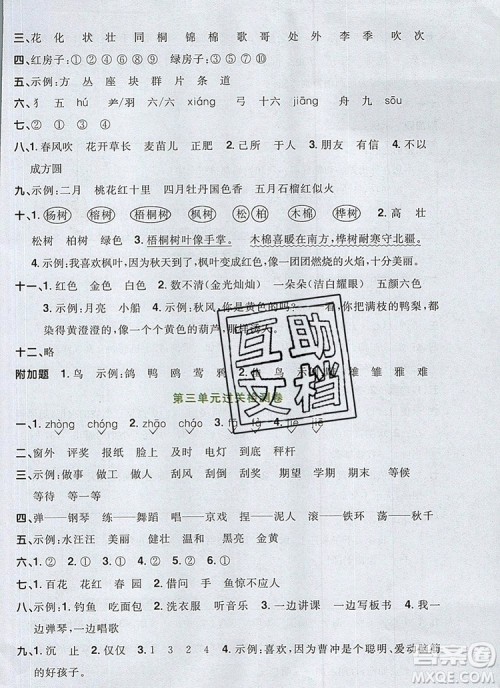 三、花 化 状 壮 同 桐 锦 棉 歌 哥 处 外 李 季 吹 次
四、红房子：②③④⑦⑧ 绿房子：①⑤⑥⑨⑩
五、示例：方 丛 座 块 群 片 条 道
六、犭 五 hú 龹/羽 六 xiáng 弓 十六 jiāng 舟 九 sōu
七、② ① ④ ③
八、1. 春风吹 花开草长 麦苗儿 正肥 2. 己所 于人 3. 朋友 有信 4. 以不
成方圆
九、示例：二月 桃花红十里 四月牡丹国色香 五月石榴红似火
十、1. 杨树 榕树 梧桐树 枫树 松 柏 木棉 桦树 2. 高 壮
松树 柏树 绿色 2. 梧桐树叶像手掌。 木棉喜暖在南方，桦树耐寒守北疆。
3. 示例：我喜欢枫叶，因为秋天到了，枫叶变成红色，像一团团燃烧的火焰，
十分美丽。
十一、1. 红色 金色 白色 2. 数不清（金光灿灿） 一朵朵（洁白耀眼） 五颜六色
3. 示例：月亮 小船 4. 示例：秋风，你是黄色的吗？你把满枝的鸭梨，都
染得黄澄澄的，像一个个黄色的葫芦，那么惹人喜爱。
十二、略
附加题 1. 鸟 示例：鹊 鸭 鸥 莺 鸦 雏 雅 难
第三单元过关检测卷
一、1. zhòng chóng 2. zhāo cháo
二、窗外 评奖 报纸 脸上 及时 电灯 邮局
三、示例：做事 做工 刮风 刮奖 期望 学期 期末 等候
等待 等一等
四、弹——钢琴 练——舞蹈 唱——京戏 捏——泥人 滚——铁环 荡——秋千
五、示例：水汪汪 美丽 健壮 温和 黑亮亮 金黄
六、② ① ② ② ①
七、1. 百花 花红 春 园 2. 借问 手 鱼惊不应人
八、示例：1. 钓鱼 吃午饭 2. 洗衣服 听音乐 3. 一边讲课 一边写板书 4. 一
边弹琴 一边唱歌
九、1. 沉 止 2. 仅仅 3. 1 3 2 4 4. 示例：因为曹冲是个聪明、爱动脑筋
的好孩子。
互助文档
答案圈
MXQE.COM